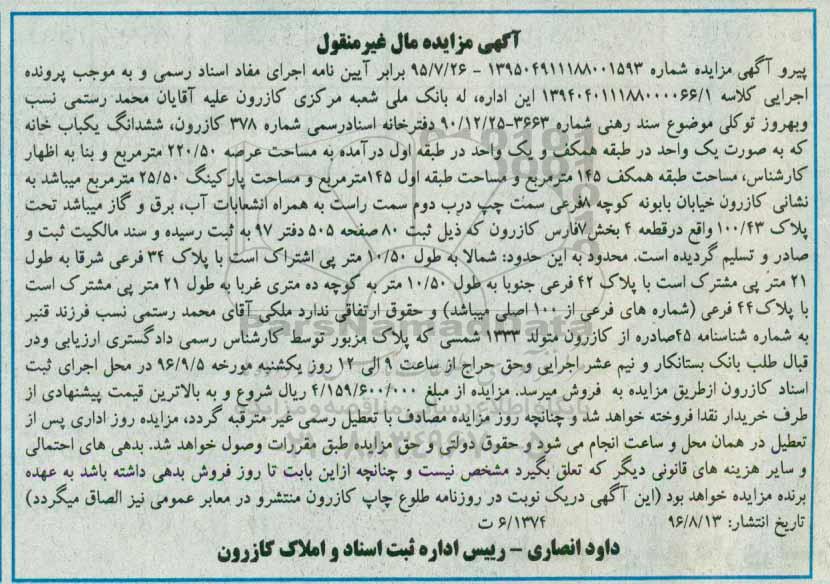 آگهی مزایده مال غیرمنقول
پیرو آگهی مزایده شماره ۱۳۹۵۰۴۹۱۱۱۸۸۰۰۱۵۹۳ - ۹۵/۷/۲۶ برابر آیین نامه اجرای مفاد اسناد رسمی و به موجب پرونده
اجرایی کلاسه ۱۳۹۴۰۴۰۱۱۱۸۸۰۰۰۰۶۶/۱ این اداره، له بانک ملی شعبه مرکزی کازرون علیه آقایان محمد رستمی نسب
وبهروز توکلی موضوع سند رهنی شماره ۳۶۶۳-۹۰/۱۲/۲۵ دفترخانه اسنادرسمی شماره ۳۷۸ کازرون، ششدانگ یکباب خانه
که به صورت یک واحد در طبقه همکف و یک واحد در طبقه اول درآمده به مساحت عرصه ۲۲۰/۵۰ مترمربع و بنا به اظهار
کارشناس، مساحت طبقه همکف ۱۴۵ مترمربع و مساحت طبقه اول ۱۴۵مترمربع و مساحت پارکینگ ۲۵/۵۰ مترمربع میباشد به
نشانی کازرون خیابان بابونه کوچه ۸فرعی سمت چپ درب دوم سمت راست به همراه انشعابات آب، برق و گاز میباشد تحت
پلاک ۱۰۰/۴۳ واقع درقطعه ۴ بخش۷فارس کازرون که ذیل ثبت ۸۰ صفحه ۵۰۵ دفتر ۹۷ به ثبت رسیده و سند مالکیت ثبت و
صادر و تسلیم گردیده است. محدود به این حدود: شمالا به طول ۱۰/۵۰ متر پی اشتراک است با پلاک ۳۴ فرعی شرقا به طول
۲۱ متر پی مشترک است با پلاک ۴۲ فرعی جنوبا به طول ۱۰/۵۰ متر به کوچه ده متری غربا به طول ۲۱ متر پی مشترک است
با پلاک۴۴ فرعی (شماره های فرعی از ۱۰۰ اصلی میباشد) و حقوق ارتفاقی ندارد ملکی آقای محمد رستمی نسب فرزند قنبر
به شماره شناسنامه ۴۵صادره از کازرون متولد ۱۳۳۳ شمسی که پلاک مزبور توسط کارشناس رسمی دادگستری ارزیابی ودر
قبال طلب بانک بستانکار و نیم عشر اجرایی وحق حراج از ساعت ۹ الی ۱۲ روز یکشنبه مورخه ۹۶/۹/۵ در محل اجرای ثبت
اسناد کازرون ازطریق مزایده به فروش میرسد. مزایده از مبلغ ۴/۱۵۹/۶۰۰/۰۰۰ ریال شروع و به بالاترین قیمت پیشنهادی از
طرف خریدار نقدا فروخته خواهد شد و چنانچه روز مزایده مصادف با تعطیل رسمی غیر مترقبه گردد، مزایده روز اداری پس از
تعطیل در همان محل و ساعت انجام می شود و حقوق دولتی و حق مزایده طبق مقررات وصول خواهد شد. بدهی های احتمالی
و سایر هزینه های قانونی دیگر که تعلق بگیرد مشخص نیست و چنانچه ازاین بابت تا روز فروش بدهی داشته باشد به عهده
برنده مزایده خواهد بود (این آگهی دریک نوبت در روزنامه طلوع چاپ کازرون منتشرو در معابر عمومی نیز الصاق میگردد)
تاریخ انتشار: ۹۶/۸/۱۳ ۶/۱۳۷۴ ت
داود انصاری - رییس اداره ثبت اسناد و املاک کازرون
ParsNamadData